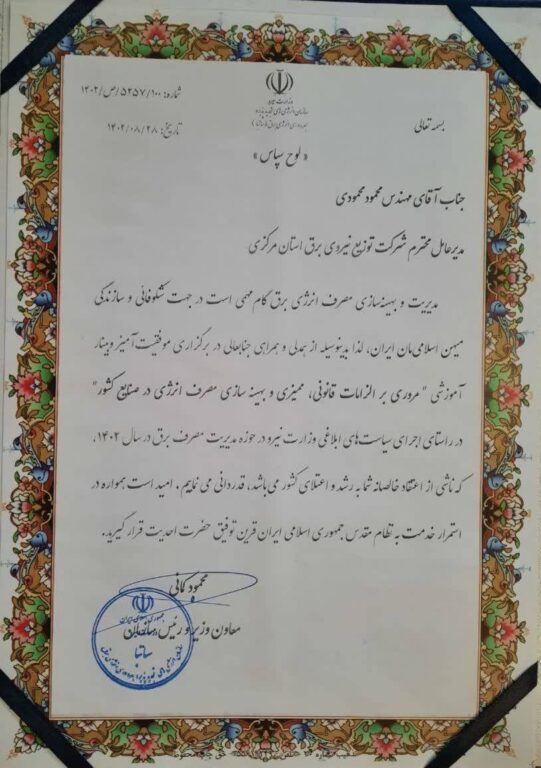 بسمه تعالی
وزارت نیرو
سازمان انرژی‌های تجدیدپذیر و
بهره‌وری انرژی برق (ساتبا)
شماره: ۱۴۰۲/ص/۵۲۵۷/۱۰۰
تاریخ: ۱۴۰۲/۰۸/۲۸
« لوح سپاس »
جناب آقای مهندس محمود محمودی
مدیرعامل محترم شرکت توزیع نیروی برق استان مرکزی
مدیریت و بهینه‌سازی مصرف انرژی برق گام مهمی است در جهت شکوفائی و سازندگی
میهن اسلامی‌مان ایران، لذا بدینوسیله از همدلی و همراهی جنابعالی در برگزاری موفقیت آمیز وبینار
آموزشی " مروری بر الزامات قانونی، ممیزی و بهینه سازی مصرف انرژی در صنایع کشور"
در راستای اجرای سیاست‌های ابلاغی وزارت نیرو در حوزه مدیریت مصرف برق در سال ۱۴۰۲،
که ناشی از اعتقاد خالصانه شما به رشد و اعتلای کشور می‌باشد، قدردانی می نماییم. امید است همواره در
استمرار خدمت به نظام مقدس جمهوری اسلامی ایران قرین توفیق حضرت احدیت قرار گیرید.
محمود کمانی
معاون وزیر و رئیس سازمان
جمهوری اسلامی ایران
وزارت نیرو
ساتبا